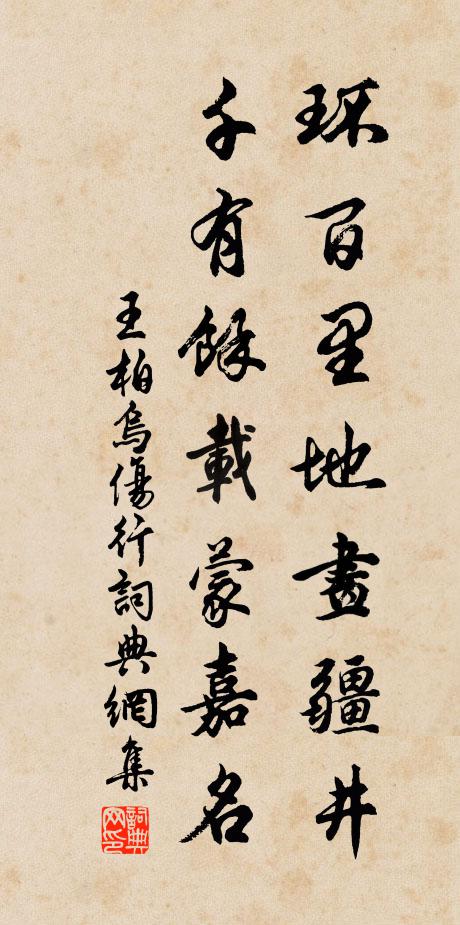 环百里地畫疆井
千有餘載蒙嘉名
王柏烏傷行詞典網集
詞典网印